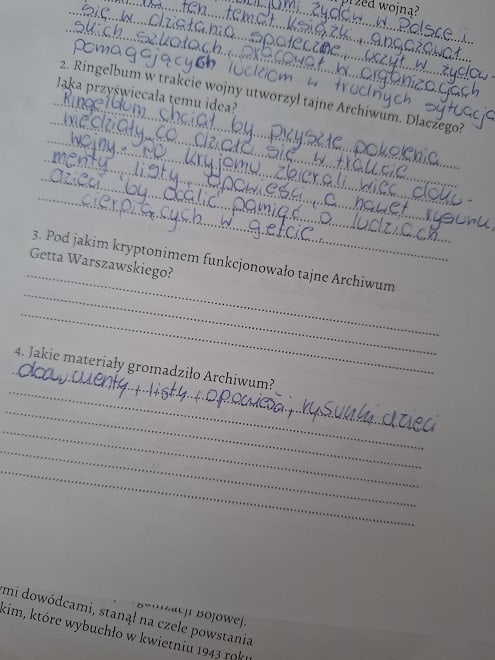 na ten temat książki, angażował
się w działania społeczne, uczył w żydow-
skich szkołach, pracował w organizacjach
pomagających ludziom w trudnych sytuacja
2. Ringelbum w trakcie wojny utworzył tajne Archiwum. Dlaczego?
Jaka przyświecała temu idea?
Ringelbum chciał by przyszłe pokolenia
wiedziały co działo się w trakcie
wojny. Po kryjomu zbierali więc doku-
menty, listy, opowieści, a nawet rysunki
dzieci by ocalić pamięć o ludziach
cierpiących w getcie.
3. Pod jakim kryptonimem funkcjonowało tajne Archiwum
Getta Warszawskiego?
4. Jakie materiały gromadziło Archiwum?
dokumenty, listy, opowieści, rysunki dzieci
Bojowej.
mi dowódcami, stanął na czele powstania
kim, które wybuchło w kwietniu 1943 roku